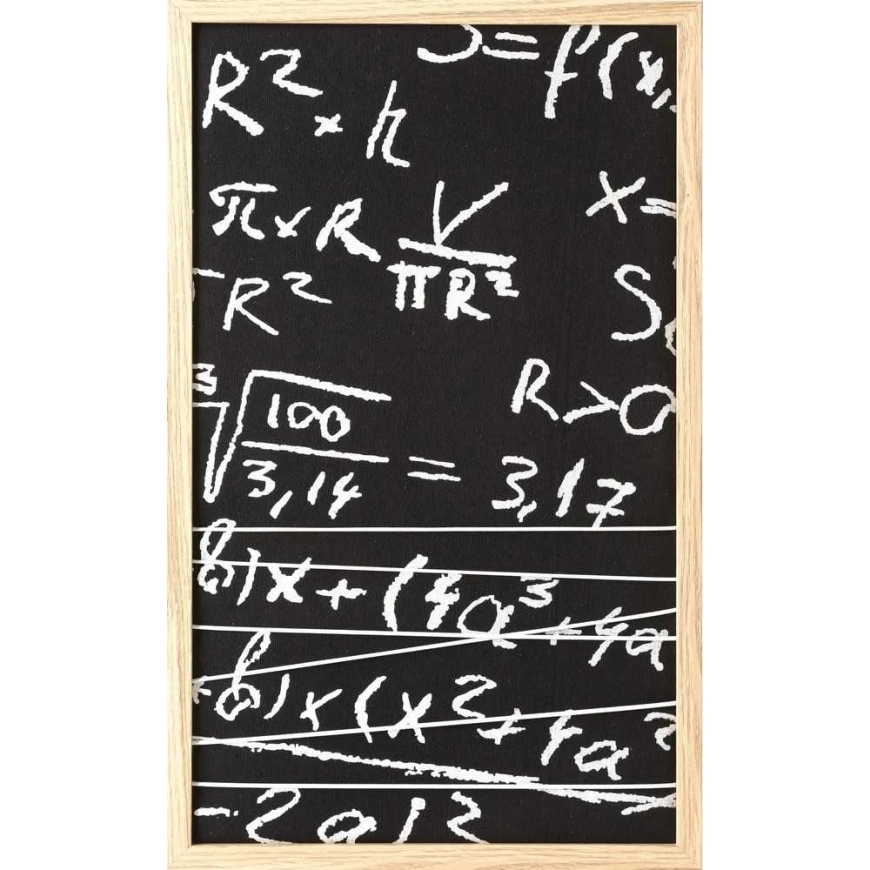 R² × h
J = f(x,
π × R
V/πR²
x =
- R²
S
R > 0
³√(100/3,14) = 3,17
b) x + (4a³ + 4a
+ b) x (x² + 4a²
- 2a)²